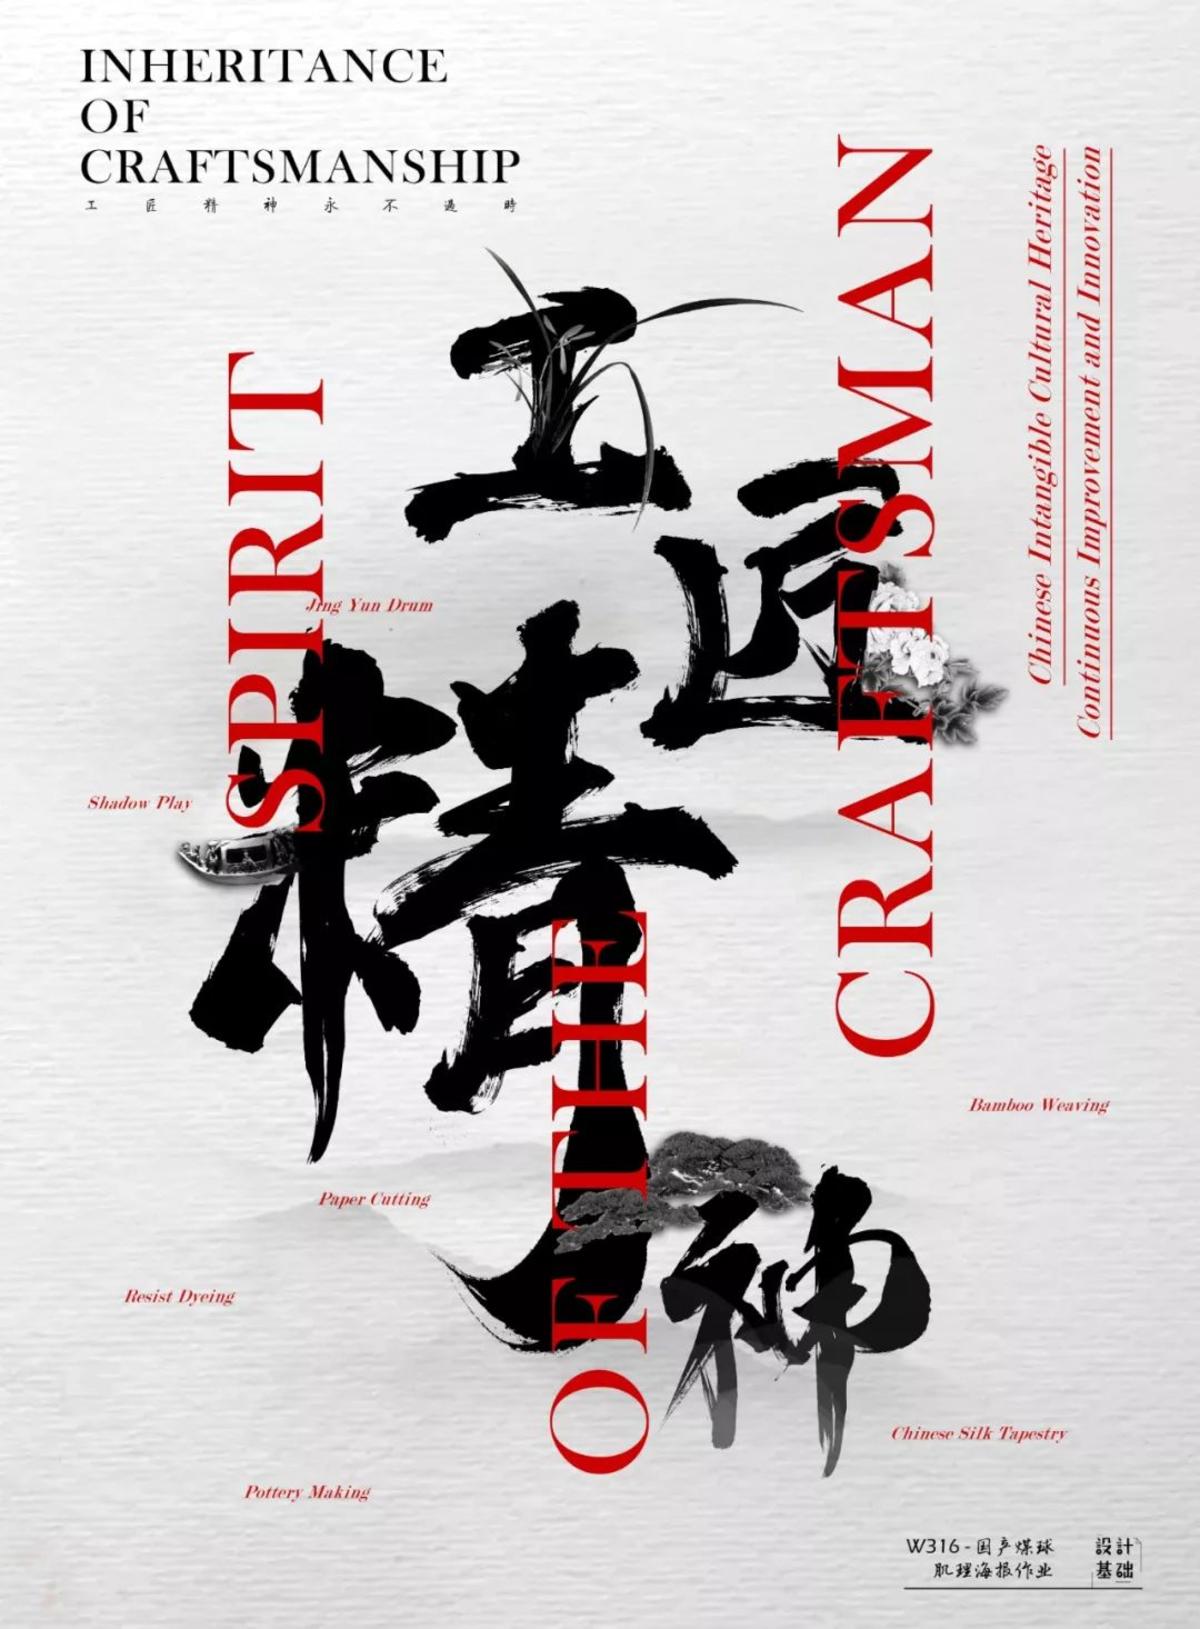 INHERITANCE
OF
CRAFTSMANSHIP
工匠精神永不過時
工匠
精神
SPIRIT
OF THE
CRAFTSMAN
Chinese Intangible Cultural Heritage
Continuous Improvement and Innovation
Jing Yun Drum
Shadow Play
Bamboo Weaving
Paper Cutting
Resist Dyeing
Chinese Silk Tapestry
Pottery Making
W316-国产煤球
肌理海报作业
設計
基础